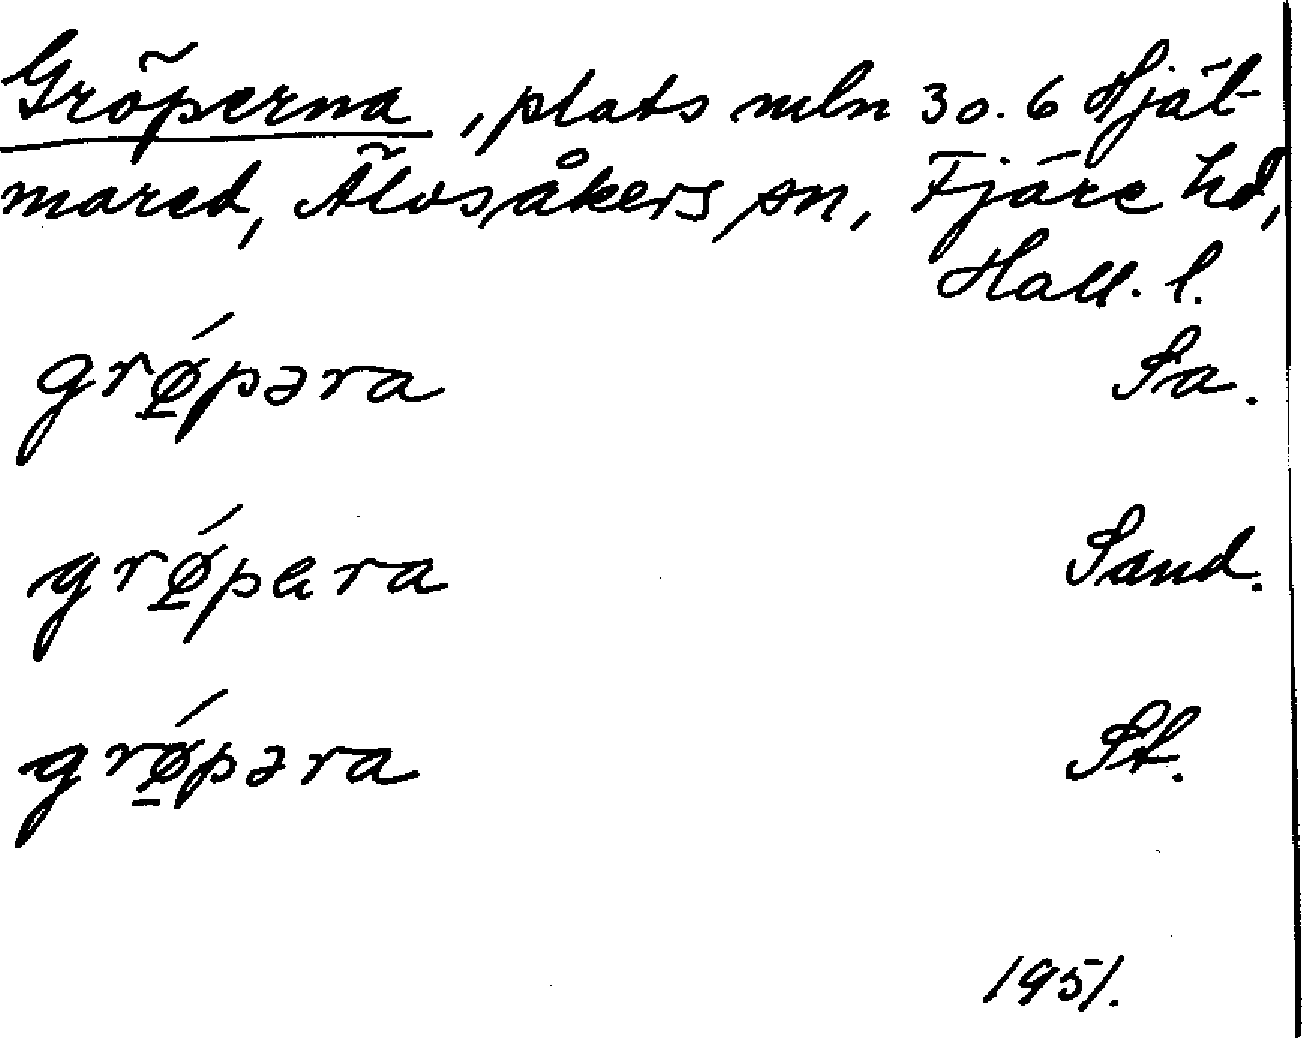 Gröperna, plats mln 30.6 Hjäl-
mared, Älvsåkers sn, Fjäre hd,
Hall. l.
grǿ̱pəra Sa.
grǿ̱pera Sand.
grǿ̱pəra St.
1951.